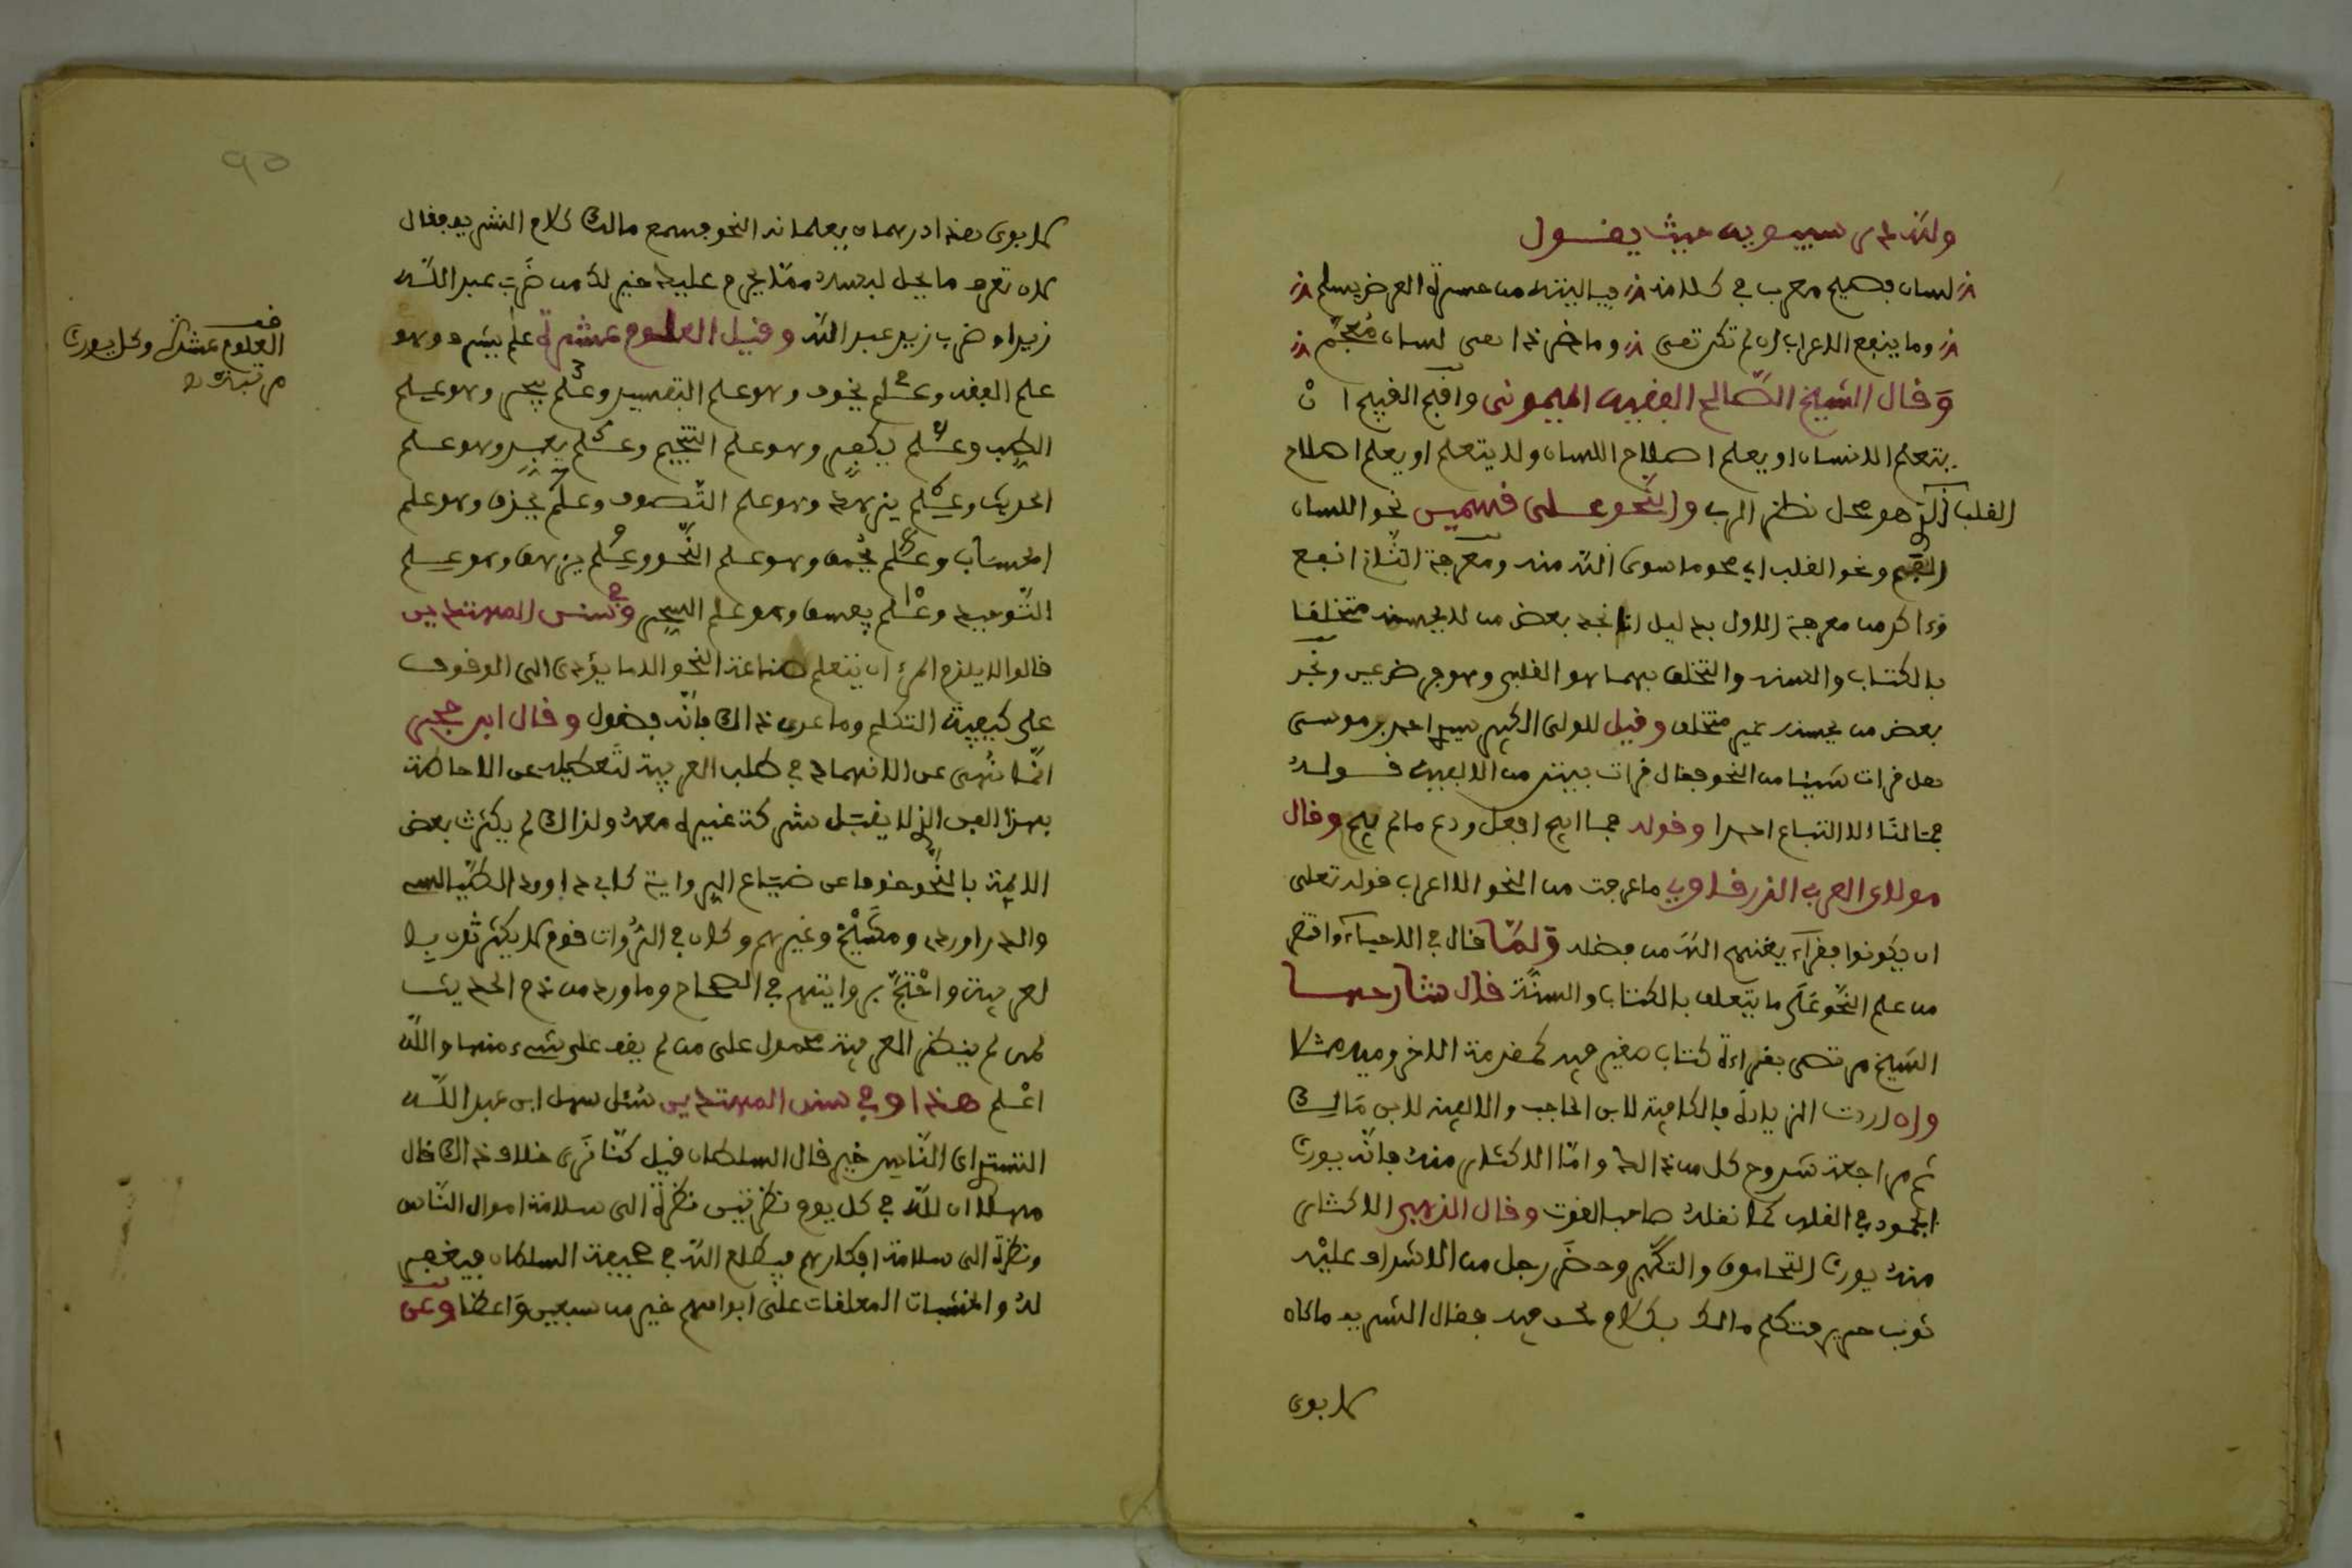 ولله در سيبويه حيث يقول
لسان فصيح معرب في كلامه فيا ليته من حسرة العرض يسلم
وما ينفع الاعراب ان لم تكن تقى وما ضر ذا تقى لسان معجم
وقال الشيخ الصالح الفقيه الميموني واقبح القبيح ان
يتعلم الانسان او يعلم اصلاح اللسان ولا يتعلم او يعلم اصلاح
القلب الذي هو محل نظر الرب والنحو على قسمين نحو اللسان
ونحو القلب اي محو ما سوى الله منه ومعرفة الثاني انفع
من معرفة الاول بدليل انا نجد بعض من لا يحسنه متخلقا
بالكتاب والسنة والتخلق بهما هو القلبي وهو فرض عين ونجد
بعض من يحسنه غير متخلق وقيل للولي الكبير سيدي احمد بن موسى
هل قرات شيئا من النحو فقال قرات بيتين من الالفية قوله
فما لنا الا اتباع احمدا وقوله فما ابيح افعل ودع ما لم يبح وقال
مولاي العربي الدرقاوي ما عرفت من النحو الا اعراب قوله تعلى
ان يكونوا فقراء يغنهم الله من فضله ولما قال في الاحياء واقتصر
من علم النحو على ما يتعلق بالكتاب والسنة قال شارحها
الشيخ مرتضى بقراءة كتاب صغير فيه كمقدمة الاجرومية مثلا
وان اردت الزيادة فالكافية لابن الحاجب والالفية لابن مالك
ثم مراجعة شروح كل من ذلك واما الاكثار منه فانه يورث
الجمود في القلب كما نقله صاحب القوت وقال الذهبي الاكثار
منه يورث التحامق والتكبر وحضر رجل من الاشراف عليه
ثوب حرير فتكلم مالك بكلام لحن فيه فقال الشريف ما كان
لابوي
لابوي هذا درهمان يعلمانه النحو فسمع مالك كلام الشريف فقال
لان تعرف ما يحل لبسه مما يحرم عليك خير لك من ضرب عبد الله
زيدا وضرب زيد عبد الله وقيل العلوم عشرة علم يشرف وهو
علم الفقه وعلم يخوف وهو علم التفسير وعلم وهو علم
الطب وعلم يكفر وهو علم التنجيم وعلم وهو علم
الحديث وعلم يزهد وهو علم التصوف وعلم يحزق وهو علم
الحساب وعلم يحمق وهو علم النحو وعلم وهو علم
التوحيد وعلم يفسق وهو علم السحر وفي سنن المهتدين
قالوا لا يلزم المرء ان يتعلم صناعة النحو الا ما يؤدي الى الوقوف
على كيفية التكلم وما عدى ذلك فانه فضول وقال ابن حجر
انما نهى عن الانهماك في طلب العربية لتعطيله عن الاحاطة
بهذا الفن الذي لا يقبل شركة غيره معه ولذلك لم يكترث بعض
الائمة بالنحو خوفا عن ضياع الرواية كابي داوود الطيالسي
والدراوردي وهشيم وغيرهم وكان في الروات قوم لا يكترثون با
لعربية واحتج بروايتهم في الصحاح وما ورد من ذم الحديث
لمن لم ينظر العربية محمول على من لم يقف على شيء منها والله
اعلم هذا وفي سنن المهتدين سئل سهل ابن عبد الله
التستري اي الناس خير قال السلطان قيل كنا نرى خلاف ذلك قال
مهلا ان لله في كل يوم نظرتين نظرة الى سلامة اموال الناس
ونظرة الى سلامة افكارهم فيطلع الله في صحيفة السلطان فيغفر
له والخشبات المعلقات على ابوابهم خير من سبعين واعظا وعن
قف
العلوم عشرة وكل يورث
مرتبته